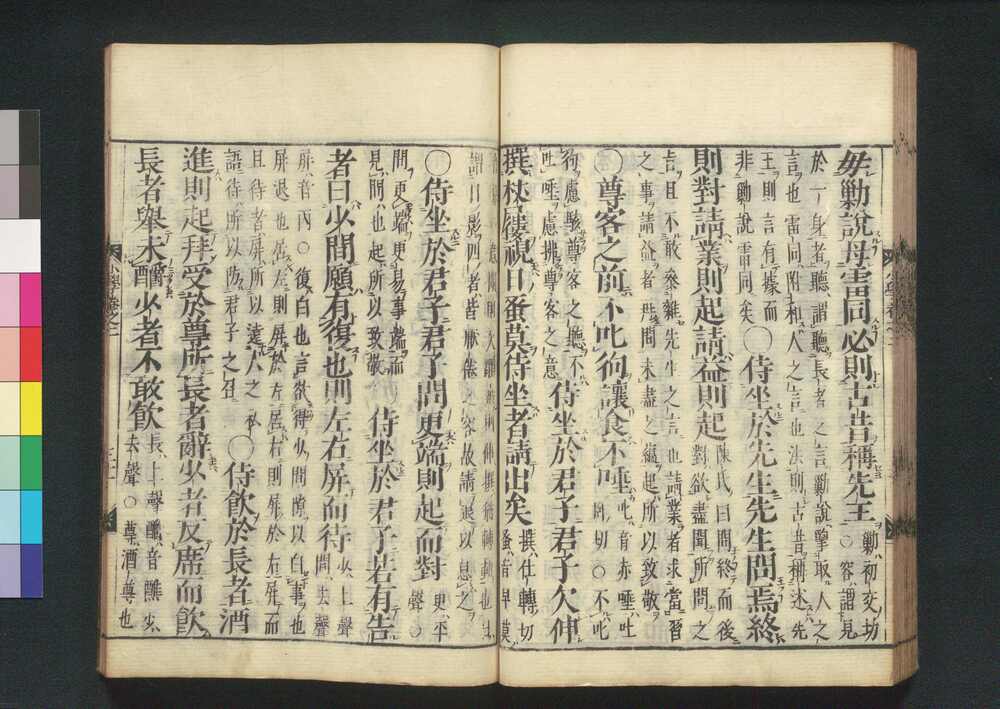 毋勦說毋雷同必則古昔稱先王勦初交切○容謂見
於一身者聽謂聽長者之言勦說擥取人之
言也雷同附和人之言也法則古昔稱述先
王則言有據而
非勦說雷同矣○侍坐於先生先生問焉終
則對請業則起請益則起陳氏曰問終而後對欲盡聞所問之
言且不敢參雜先生之言也請業者求當習
之事請益者再問未盡之蘊起所以致敬
○尊客之前不叱狗讓食不唾叱音赤唾吐臥切○不叱
狗慮駭尊客之聽不
唾慮拂尊客之意侍坐於君子君子欠伸
撰杖屨視日蚤莫侍坐者請出矣撰仕轉切蚤音早莫
視日影四者皆厭倦之容故請退以息之
○侍坐於君子君子問更端則起而對更平聲○
問更端更易事端而
見問也起所以致敬侍坐於君子若有告
者曰少間願有復也則左右屏而待少上聲間去聲
屏音丙○復白也言欲得少間隙以白事也
屏退也居左則屏於左居右則屏於右屏而
且待者屏所以遠人之私
語待所以防君子之召○侍飲於長者酒
進則起拜受於尊所長者辭少者反席而飲
長者舉未釂少者不敢飲長上聲釂音醮少去聲○尊酒尊也